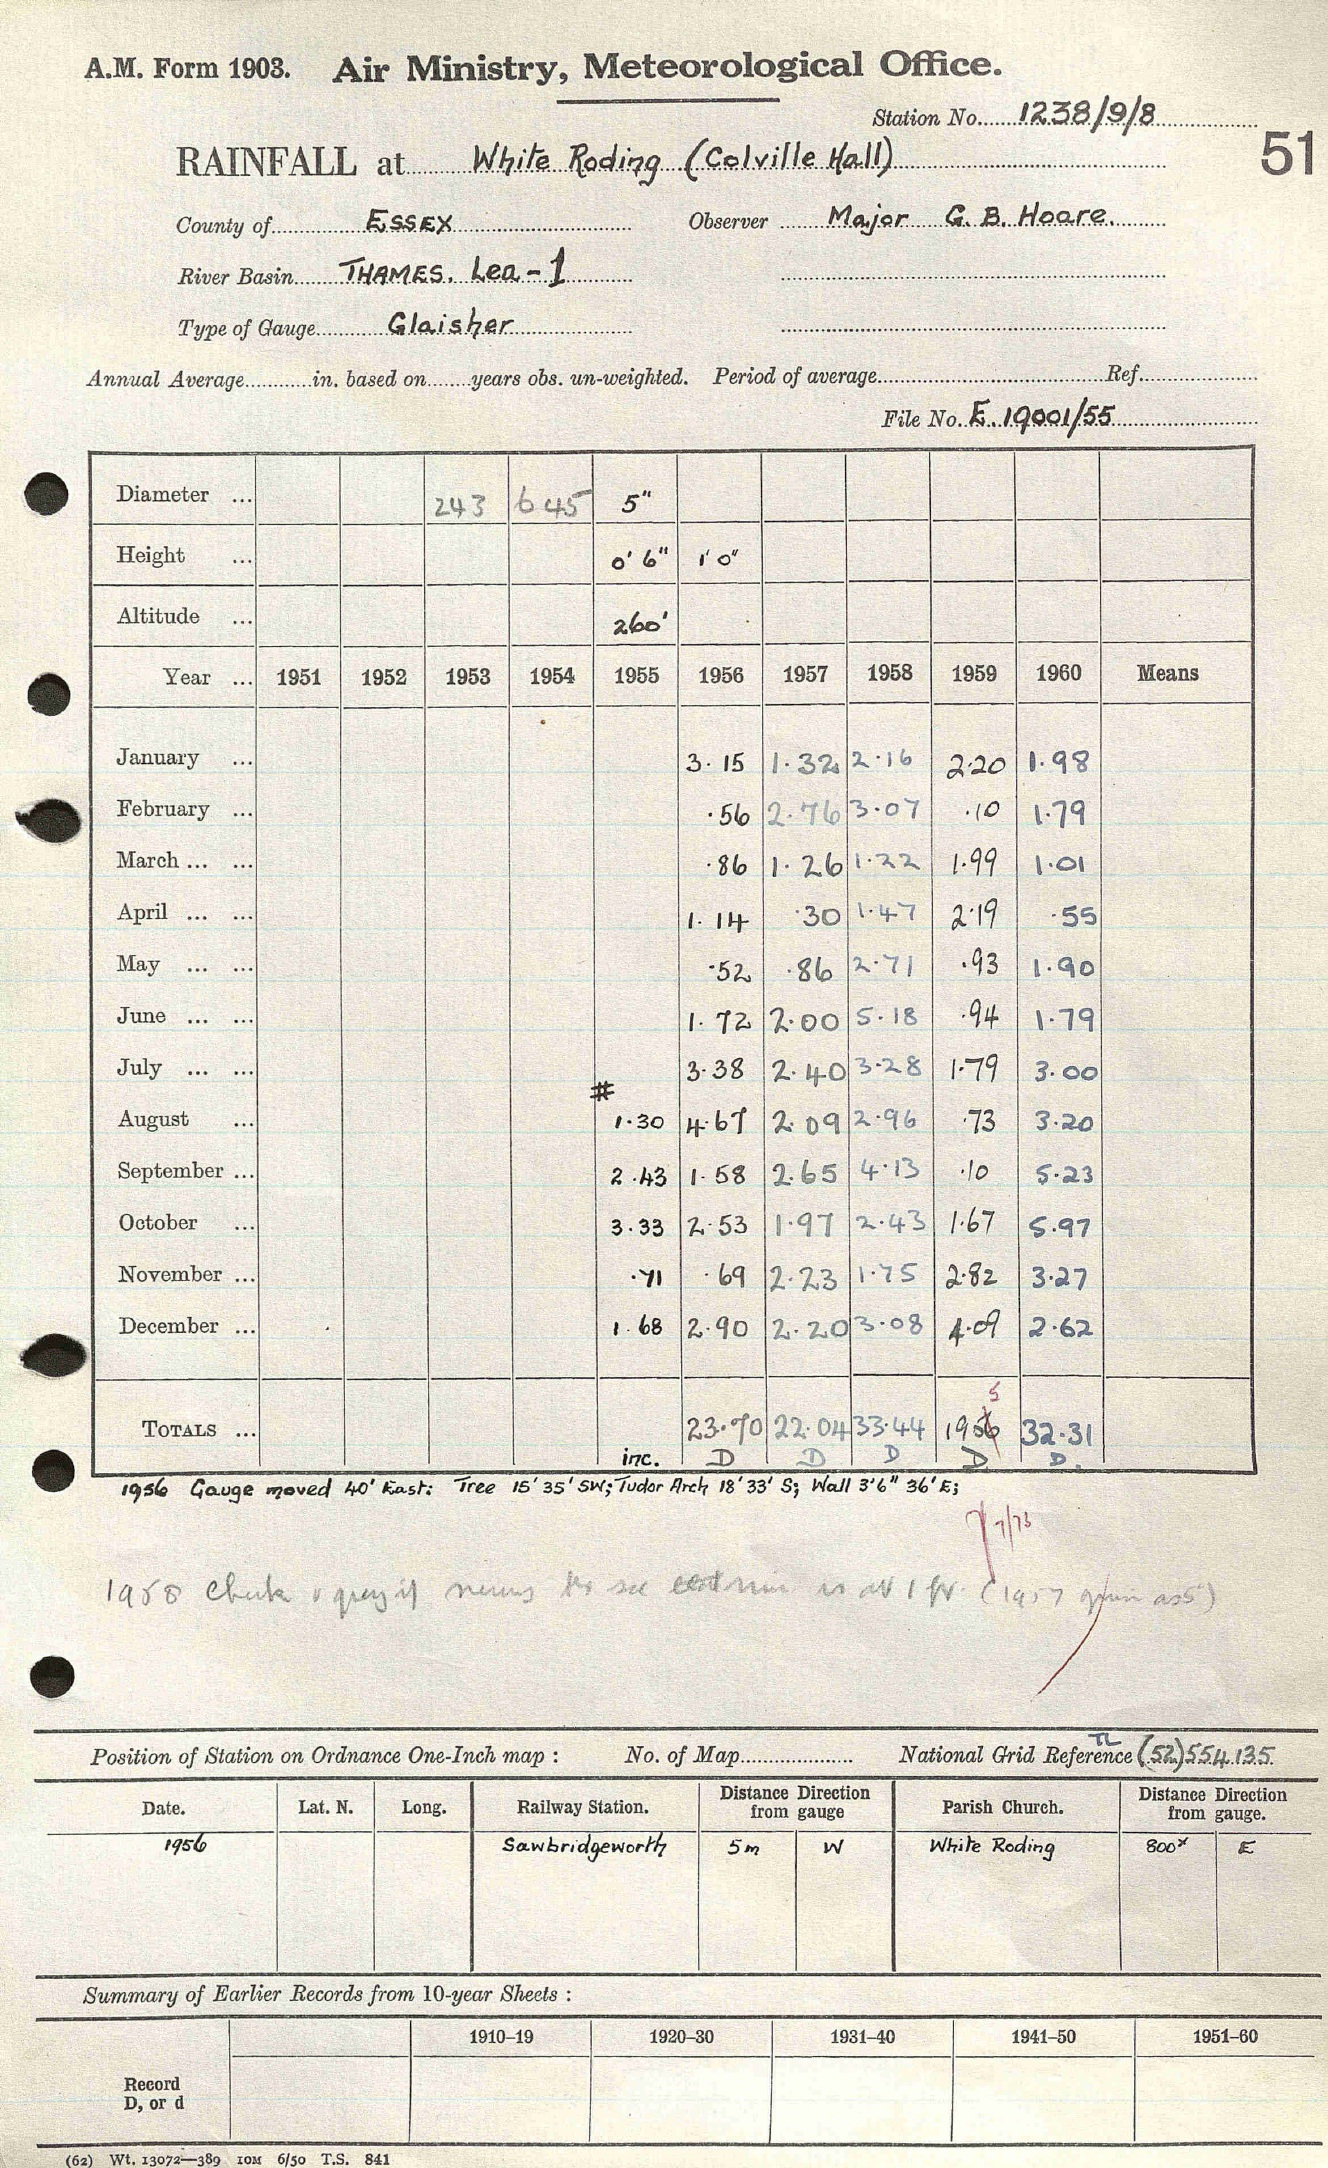 A.M. Form 1903. Air Ministry, Meteorological Office.
Station No. 1238/9/8
51
RAINFALL at White Roding (Colville Hall)
County of ESSEX Observer Major G. B. Hoare.
River Basin THAMES. Lea-1
Type of Gauge Glaisher
Annual Average in. based on years obs. un-weighted. Period of average Ref.
File No. E. 19001/55
Diameter ... 243 645 5"
Height ... 0' 6" 1' 0"
Altitude ... 260'
Year ... 1951 1952 1953 1954 1955 1956 1957 1958 1959 1960 Means
January ... 3.15 1.32 2.16 2.20 1.98
February ... .56 2.76 3.07 .10 1.79
March ... ... .86 1.26 1.22 1.99 1.01
April ... ... 1.14 .30 1.47 2.19 .55
May ... ... .52 .86 2.71 .93 1.90
June ... ... 1.72 2.00 5.18 .94 1.79
July ... ... 3.38 2.40 3.28 1.79 3.00
#
August ... 1.30 4.67 2.09 2.96 .73 3.20
September ... 2.43 1.58 2.65 4.13 .10 5.23
October ... 3.33 2.53 1.97 2.43 1.67 5.97
November ... .71 .69 2.23 1.75 2.82 3.27
December ... 1.68 2.90 2.20 3.08 4.09 2.62
5
TOTALS ... 23.70 22.04 33.44 1956 32.31
inc. D D D D D.
1956 Gauge moved 40' East: Tree 15' 35' SW; Tudor Arch 18' 33' S; Wall 3'6" 36' E;
7/73
1958 Check is at 1 ft. (1957
TL
Position of Station on Ordnance One-Inch map : No. of Map National Grid Reference (52) 554 135
Date. Lat. N. Long. Railway Station. Distance from gauge Direction Parish Church. Distance from gauge. Direction
1956 Sawbridgeworth 5m W White Roding 800x E
Summary of Earlier Records from 10-year Sheets :
1910–19 1920–30 1931–40 1941–50 1951–60
Record
D, or d
(62) Wt. 13072—389 10M 6/50 T.S. 841